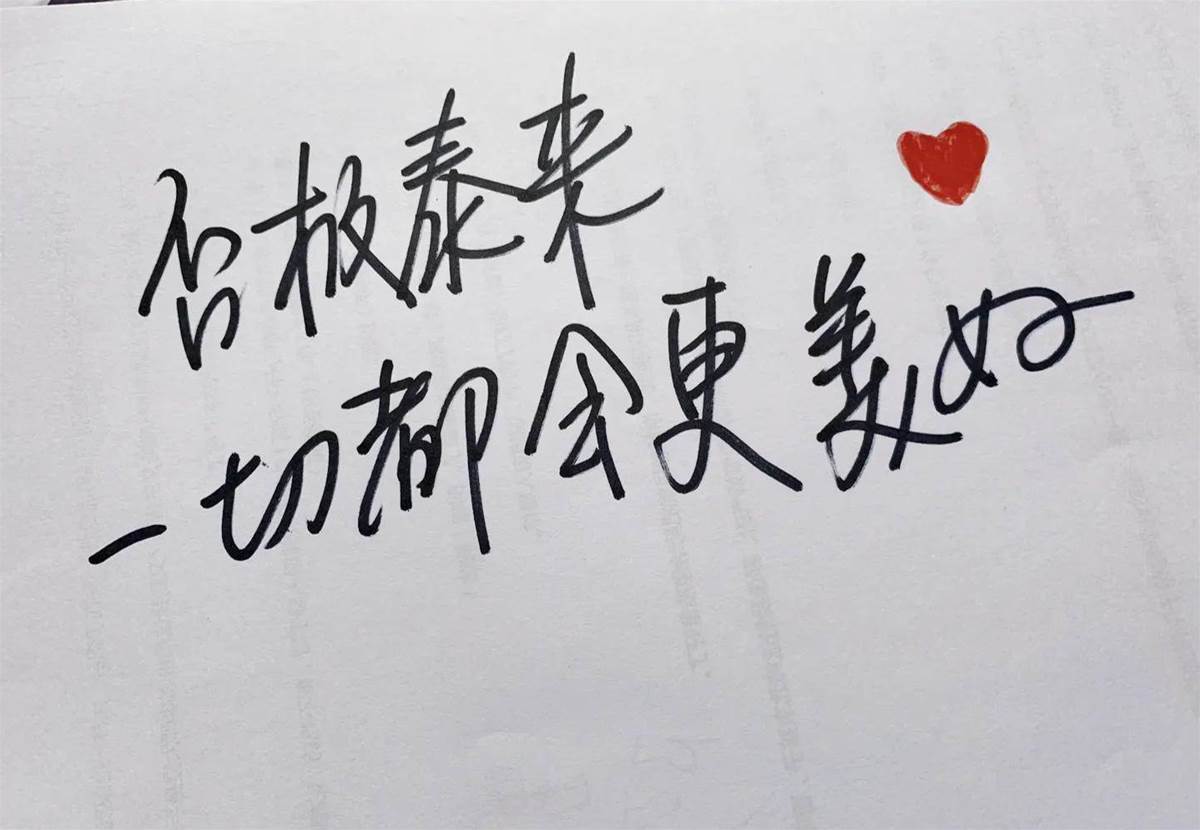 否极泰来
一切都会更美好